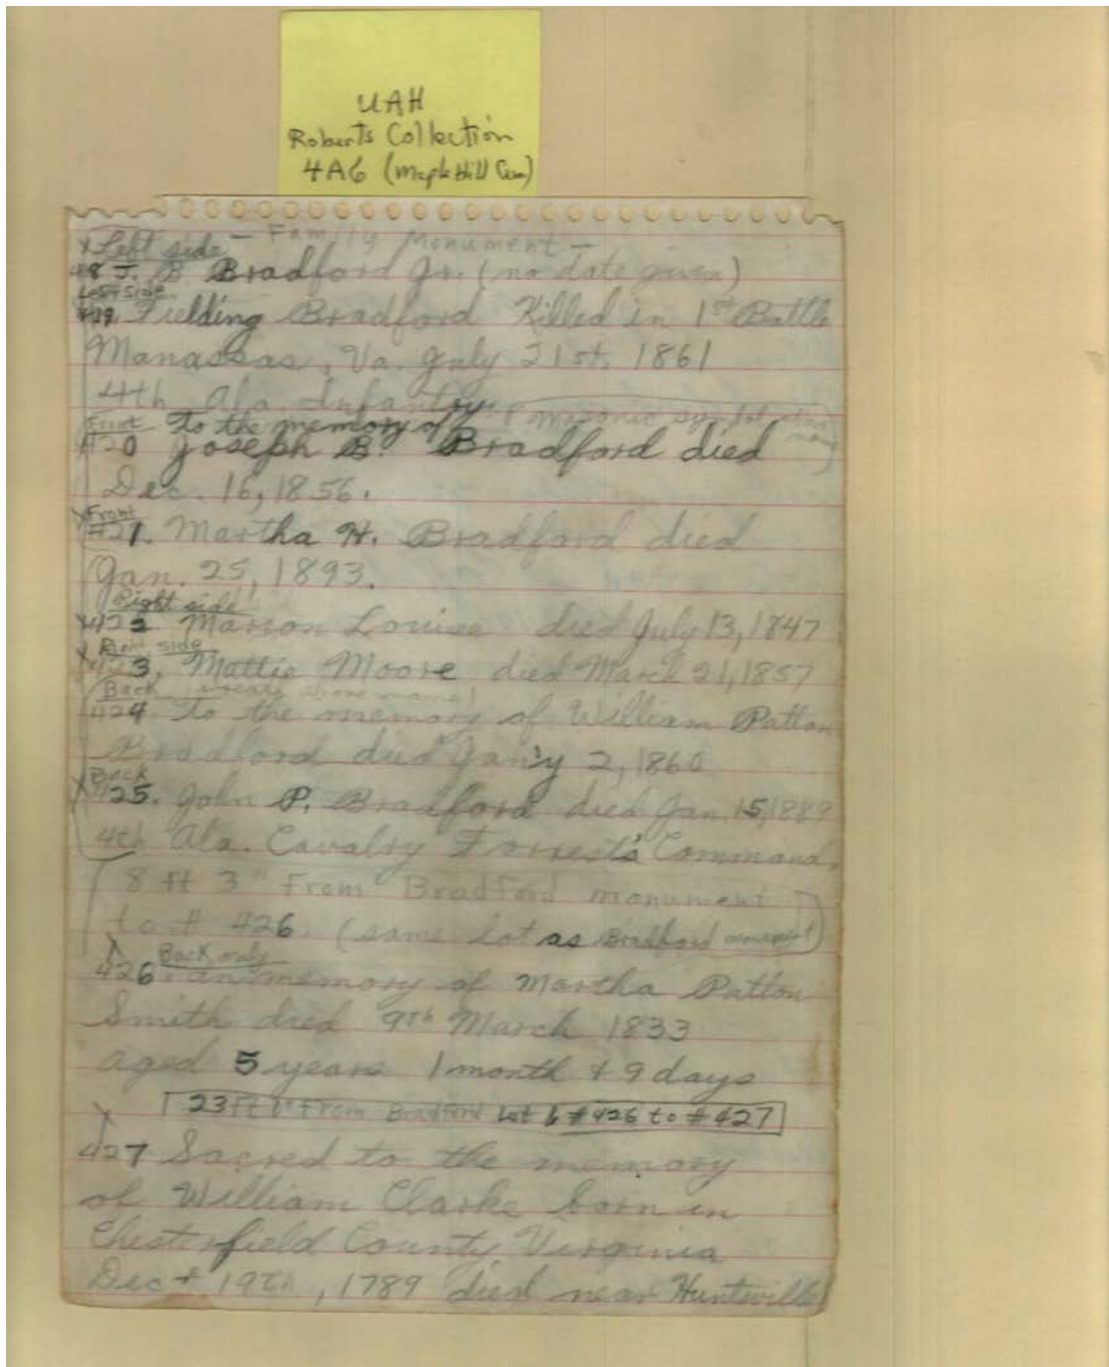 UAH
Roberts Collection
4A6 (Maple Hill Cem)
- Family Monument -
x Left side
418 J. B. Bradford Jr. (no date given)
Left side
419 Fielding Bradford Killed in 1st Battle
Manassas, Va. July 21st, 1861
4th Ala Infantry (masonic symbol
Front To the memory of
420 Joseph B. Bradford died
Dec. 16, 1856.
x Front
421. Martha H. Bradford died
Jan. 25, 1893.
Right side
x 422 Marion Louise died July 13, 1847
x Right side
423, Mattie Moore died March 21, 1857
Back (wreath above name)
424. To the memory of William Patton
Bradford died Jan'y 2, 1860
Back
x 425. John P. Bradford died Jan. 15, 1889
4th Ala. Cavalry Forrest's Command.
8 ft 3" From Bradford monument
to # 426. (same lot as Bradford monument)
Back only
426. In memory of Martha Patton
Smith died 9th March 1833
aged 5 years 1 month & 9 days
23 ft From Bradford Lot #426 to #427
427 Sacred to the memory
of William Clarke born in
Chesterfield County Virginia
Decr 19th, 1789 died near Huntsville